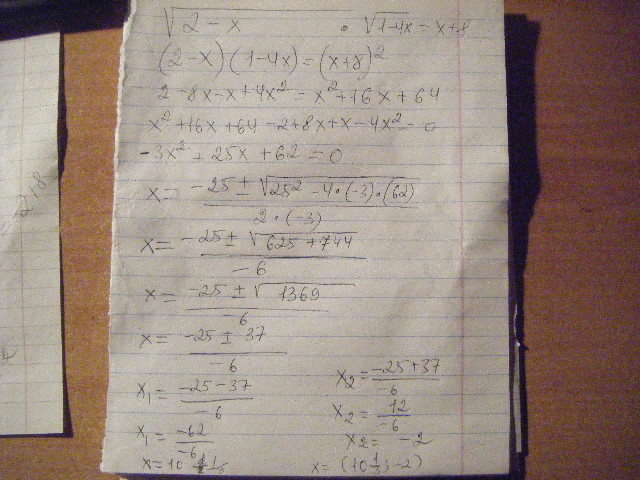 √2-x · √1-4x = x+8
(2-x)(1-4x)=(x+8)²
2-8x-x+4x²=x²+16x+64
x²+16x+64-2+8x+x-4x²=0
-3x²+25x+62=0
x= -25±√25²-4·(-3)·(62) / 2·(-3)
x= -25±√625+744 / -6
x= -25±√1369 / -6
x= -25±37 / -6
x₁= -25-37 / -6
x₂= -25+37 / -6
x₁= -62 / -6
x₂= 12 / -6
x₂= -2
x=10
x=(10 1/3; -2)